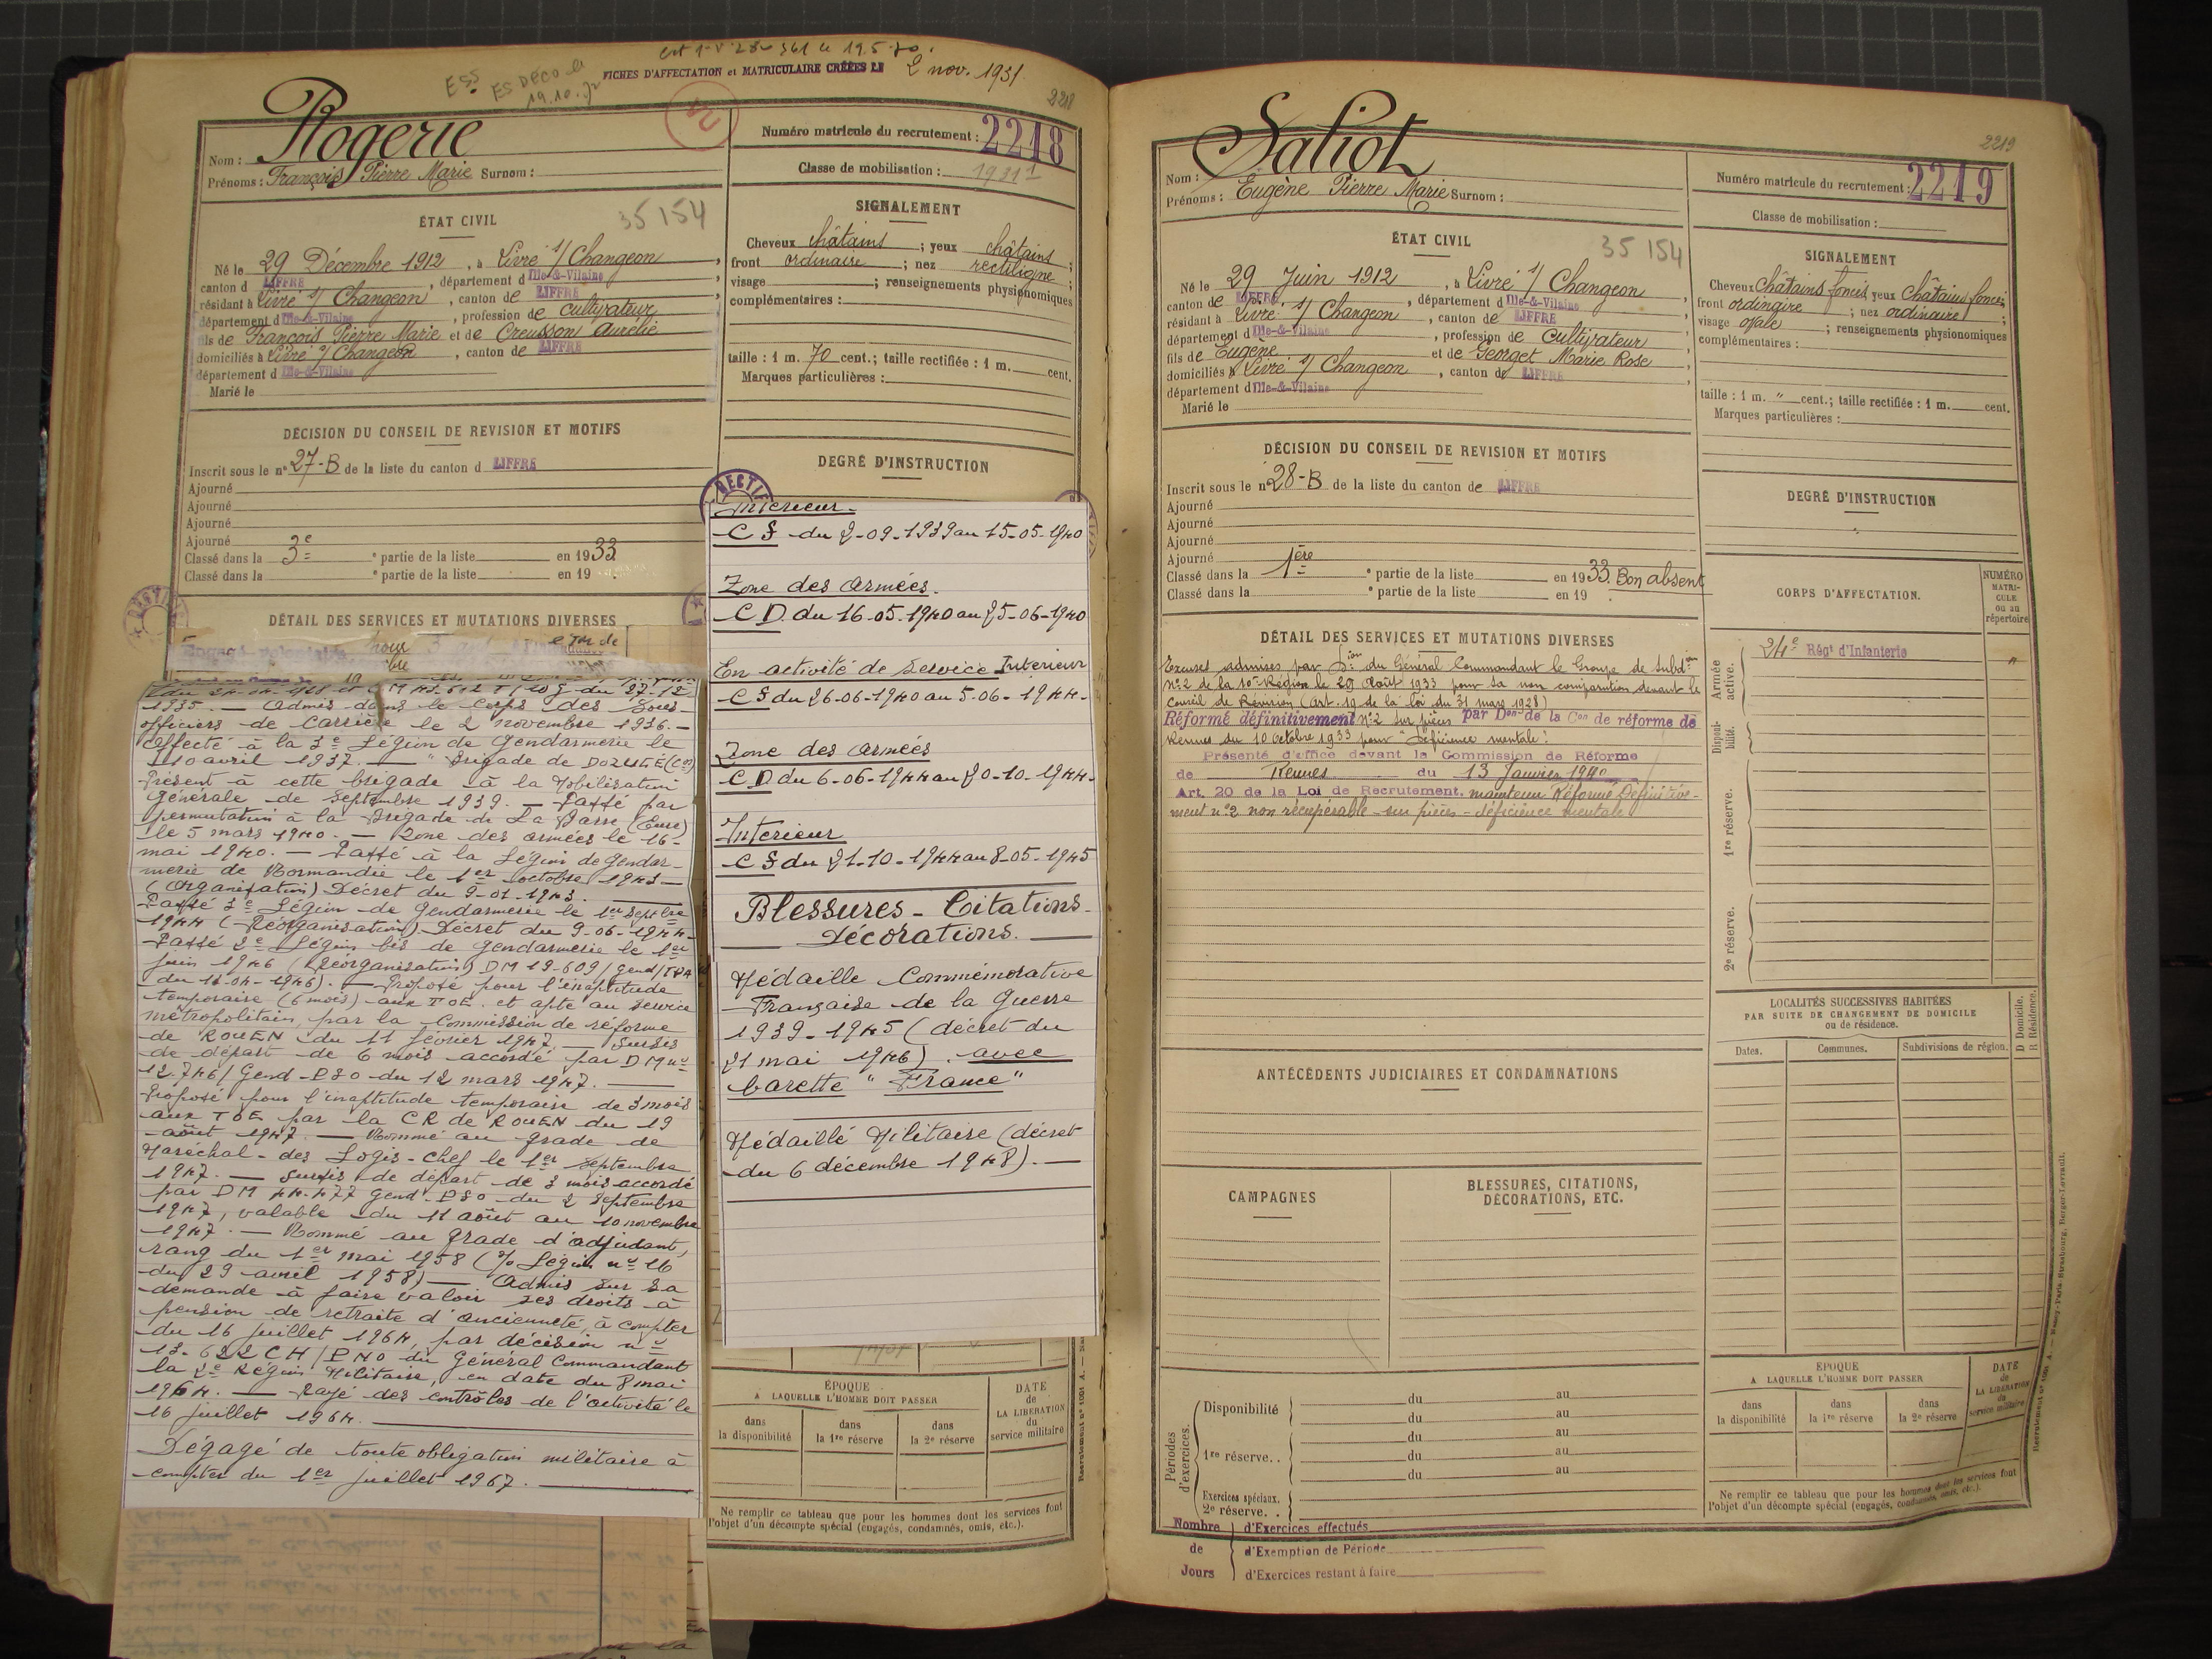 FICHES D'AFFECTATION et MATRICULAIRE CRÉÉES LE 2 nov. 1931
2218
Nom : Rogerie
Prénoms : François Pierre Marie Surnom :
Numéro matricule du recrutement : 2218
Classe de mobilisation : 1931
ÉTAT CIVIL
35154
Né le 29 Décembre 1912, à Livré s/ Changeon,
canton d LIFFRE, département d Ille-&-Vilaine
résidant à Livré s/ Changeon, canton de LIFFRE
département d Ille-&-Vilaine, profession de Cultivateur
fils de François Pierre Marie et de Creusson Aurélie
domiciliés à Livré s/ Changeon, canton de LIFFRE
département d Ille-&-Vilaine
Marié le
SIGNALEMENT
Cheveux châtains ; yeux châtains ;
front ordinaire ; nez rectiligne ;
visage ; renseignements physionomiques
complémentaires :
taille : 1 m. 70 cent.; taille rectifiée : 1 m. cent.
Marques particulières :
DÉCISION DU CONSEIL DE REVISION ET MOTIFS
Inscrit sous le n° 27-B de la liste du canton d LIFFRE
Ajourné
Ajourné
Ajourné
Ajourné
Classé dans la 3e ° partie de la liste en 1933
Classé dans la ° partie de la liste en 19
DÉTAIL DES SERVICES ET MUTATIONS DIVERSES
1935. — Admis dans le Corps des Sous-
officiers de Carrière le 2 novembre 1936. —
affecté à la 3e Légion de Gendarmerie le
10 avril 1937. — Brigade de DOZULÉ
Présent à cette brigade à la Mobilisation
Générale de Septembre 1939. — Passé par
permutation à la Brigade de La Barre (Eure)
le 5 mars 1940. — Zone des armées le 16-
mai 1940. — Passé à la Légion de Gendar-
merie de Normandie le 1er octobre 1943 —
(Organisation) Décret du 9-01-1943.
Passé 3e Légion de Gendarmerie le 1er Septbre
1944 (Réorganisation) Décret du 9-06-1944-
Passé 2e Légion bis de Gendarmerie le 1er
juin 1946 (Réorganisation) DM 19-609/Gend/
du 16-04-1946). — Proposé pour l'inaptitude
temporaire (6 mois) aux TOE. et apte au service
métropolitain, par la Commission de réforme
de ROUEN du 11 février 1947. — Sursis
de départ de 6 mois accordé par DM no
12.746/ Gend-PSO du 12 mars 1947.
Proposé pour l'inaptitude temporaire de 3 mois
aux TOE par la CR de ROUEN du 19
août 1947. — Nommé au grade de
Maréchal-des Logis-Chef le 1er Septembre
1947. — Sursis de départ de 3 mois accordé
par DM 44.477 Gend-PSO du 2 Septembre
1947, valable du 11 août au 10 novembre
1947. — Nommé au grade d'adjudant,
rang du 1er mai 1958 (o/o Légion no 16
du 29 avril 1958) — Admis sur sa
demande à faire valoir ses droits à
pension de retraite d'ancienneté, à compter
du 16 juillet 1964, par décision no
13-622 CH/PNO du Général Commandant
la 2e Région Militaire, en date du 8 mai
1964. — Rayé des contrôles de l'activité le
16 juillet 1964.
Dégagé de toute obligation militaire à
compter du 1er juillet 1967.
DEGRÉ D'INSTRUCTION
Intérieur.
C S du 2-09-1939 au 15-05-1940
Zone des Armées.
C D du 16-05-1940 au 25-06-1940
En activité de Service Intérieur
C S du 26-06-1940 au 5-06-1944-
Zone des Armées
C D du 6-06-1944 au 20-10-1944-
Intérieur
C S du 21-10-1944 au 8-05-1945
Blessures - Citations -
Décorations.
Médaille Commémorative
Française de la Guerre
1939-1945 (décret du
21 mai 1946) avec
barette "France"
Médaillé Militaire (décret
du 6 décembre 1948). —
ÉPOQUE
A LAQUELLE L'HOMME DOIT PASSER
dans la disponibilité
dans la 1re réserve
dans la 2e réserve
DATE de LA LIBÉRATION du service militaire
Ne remplir ce tableau que pour les hommes dont les services font
l'objet d'un décompte spécial (engagés, condamnés, omis, etc.).
2219
Nom : Saliot
Prénoms : Eugène Pierre Marie Surnom :
Numéro matricule du recrutement : 2219
Classe de mobilisation :
ÉTAT CIVIL
35154
Né le 29 Juin 1912, à Livré s/ Changeon
canton de LIFFRE, département d Ille-&-Vilaine
résidant à Livré s/ Changeon, canton de LIFFRE
département d Ille-&-Vilaine, profession de Cultivateur
fils de Eugène et de Georget Marie Rose
domiciliés à Livré s/ Changeon, canton de LIFFRE
département d Ille-&-Vilaine
Marié le
SIGNALEMENT
Cheveux Châtains foncés yeux Châtains foncés
front ordinaire ; nez ordinaire ;
visage ovale ; renseignements physionomiques
complémentaires :
taille : 1 m. " cent.; taille rectifiée : 1 m. cent.
Marques particulières :
DÉCISION DU CONSEIL DE REVISION ET MOTIFS
Inscrit sous le n° 28-B de la liste du canton de LIFFRE
Ajourné
Ajourné
Ajourné
Ajourné
Classé dans la 1ère ° partie de la liste en 1933. Bon absent
Classé dans la ° partie de la liste en 19
DEGRÉ D'INSTRUCTION
CORPS D'AFFECTATION.
NUMÉRO MATRICULE ou au répertoire
DÉTAIL DES SERVICES ET MUTATIONS DIVERSES
Excuses admises par Dion du Général Commandant le Groupe de Subdion
No 2 de la 10e Région le 29 Août 1933 pour sa non comparution devant le
Conseil de Révision (art. 19 de la loi du 31 mars 1928)
Réformé définitivement No 2 sur pièces par Don de la Con de réforme de
Rennes du 10 octobre 1933 pour "Déficience mentale".
Présenté d'office devant la Commission de Réforme
de Rennes du 13 Janvier 1940
Art. 20 de la Loi de Recrutement. maintenu Réformé Définitive-
ment no 2 non récupérable - sur pièces - déficience mentale
Armée active.
24e Régt d'Infanterie
"
Disponibilité.
1re réserve.
2e réserve.
LOCALITÉS SUCCESSIVES HABITÉES
PAR SUITE DE CHANGEMENT DE DOMICILE
ou de résidence.
Dates. Communes. Subdivisions de région. D Domicile. R Résidence.
ANTÉCÉDENTS JUDICIAIRES ET CONDAMNATIONS
CAMPAGNES
BLESSURES, CITATIONS,
DÉCORATIONS, ETC.
Périodes d'exercices.
Disponibilité du au
du au
1re réserve.. du au
du au
du au
Exercices spéciaux.
2e réserve. .
Nombre de Jours
d'Exercices effectués
d'Exemption de Période
d'Exercices restant à faire
ÉPOQUE
A LAQUELLE L'HOMME DOIT PASSER
dans la disponibilité
dans la 1re réserve
dans la 2e réserve
DATE de LA LIBÉRATION du service militaire
Ne remplir ce tableau que pour les hommes dont les services font
l'objet d'un décompte spécial (engagés, condamnés, omis, etc.).